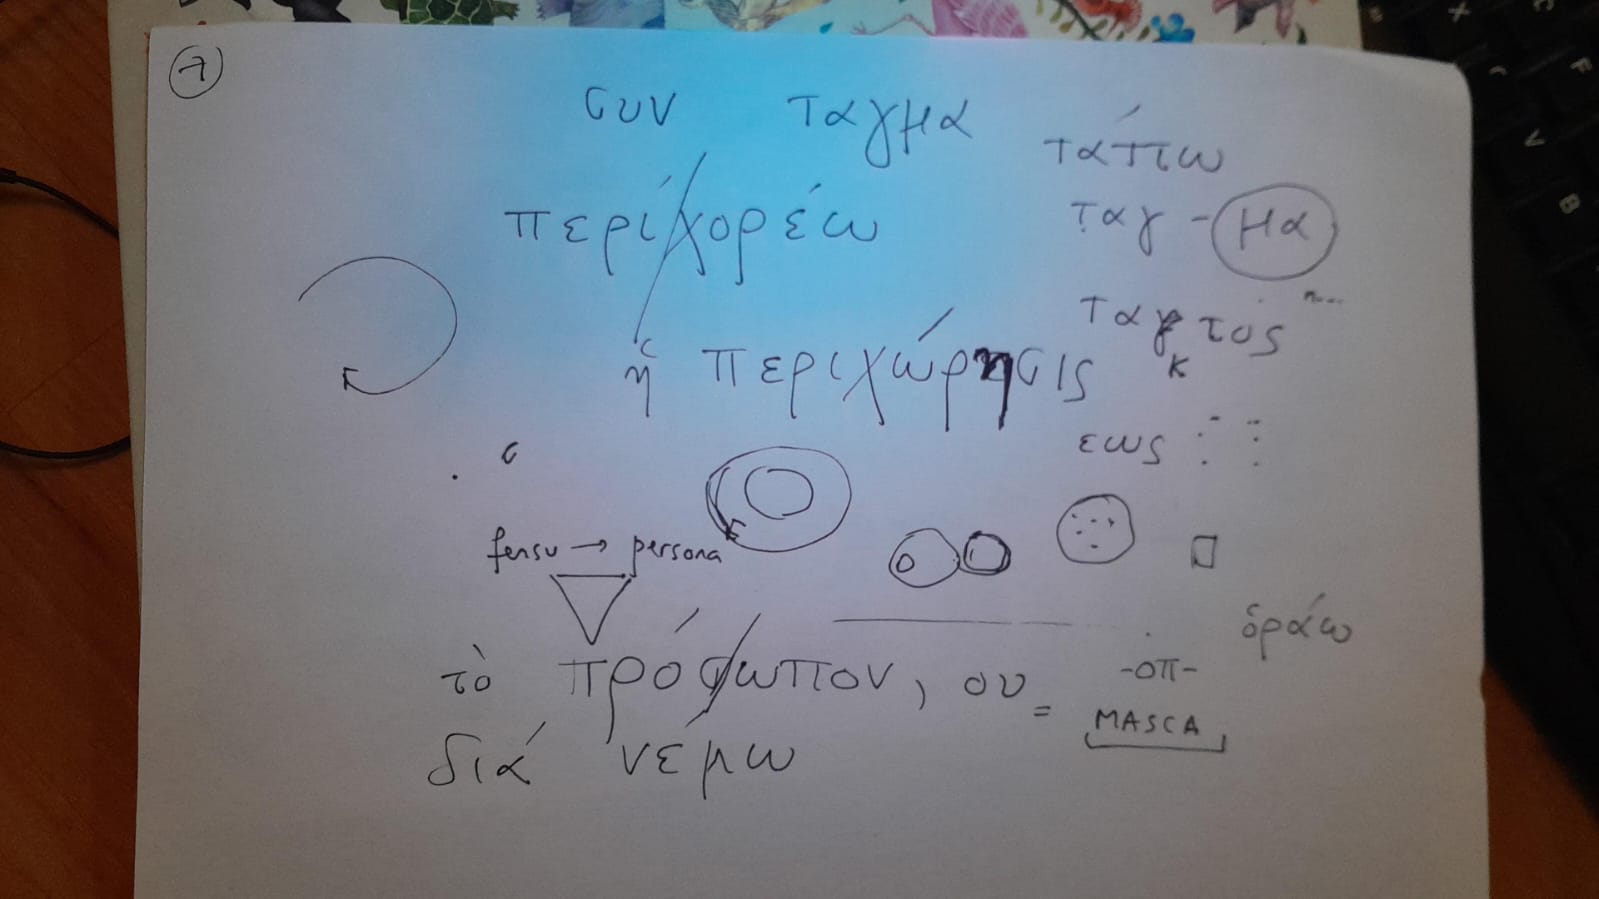 7
συν ταγμα
τάττω
περί χορέω
ταγ - μα
ταγτός
κ
ἡ περιχώρησις
εως
fersu → persona
ὁράω
τὸ πρόσωπον, ου =
-οπ-
MASCA
διά νέμω